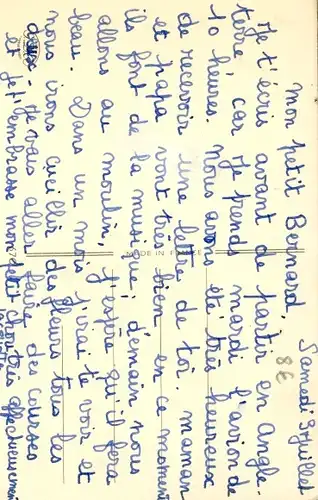 Samedi 3 juillet
8€
Mon petit Bernard,
Je t'écris avant de partir en Angle
terre, car je prends mardi l'avion de
10 heures. Nous avons été très heureux
de recevoir une lettre de toi. maman
et papa vont très bien en ce moment
ils font de la musique; demain nous
allons au moulin, j'espère qu'il fera
beau. Dans un mois j'irai te voir et
nous irons cueillir des fleurs tous les
deux - Je vais aller faire des courses
et je t'embrasse mon petit très affectueusement
MADE IN FRANCE